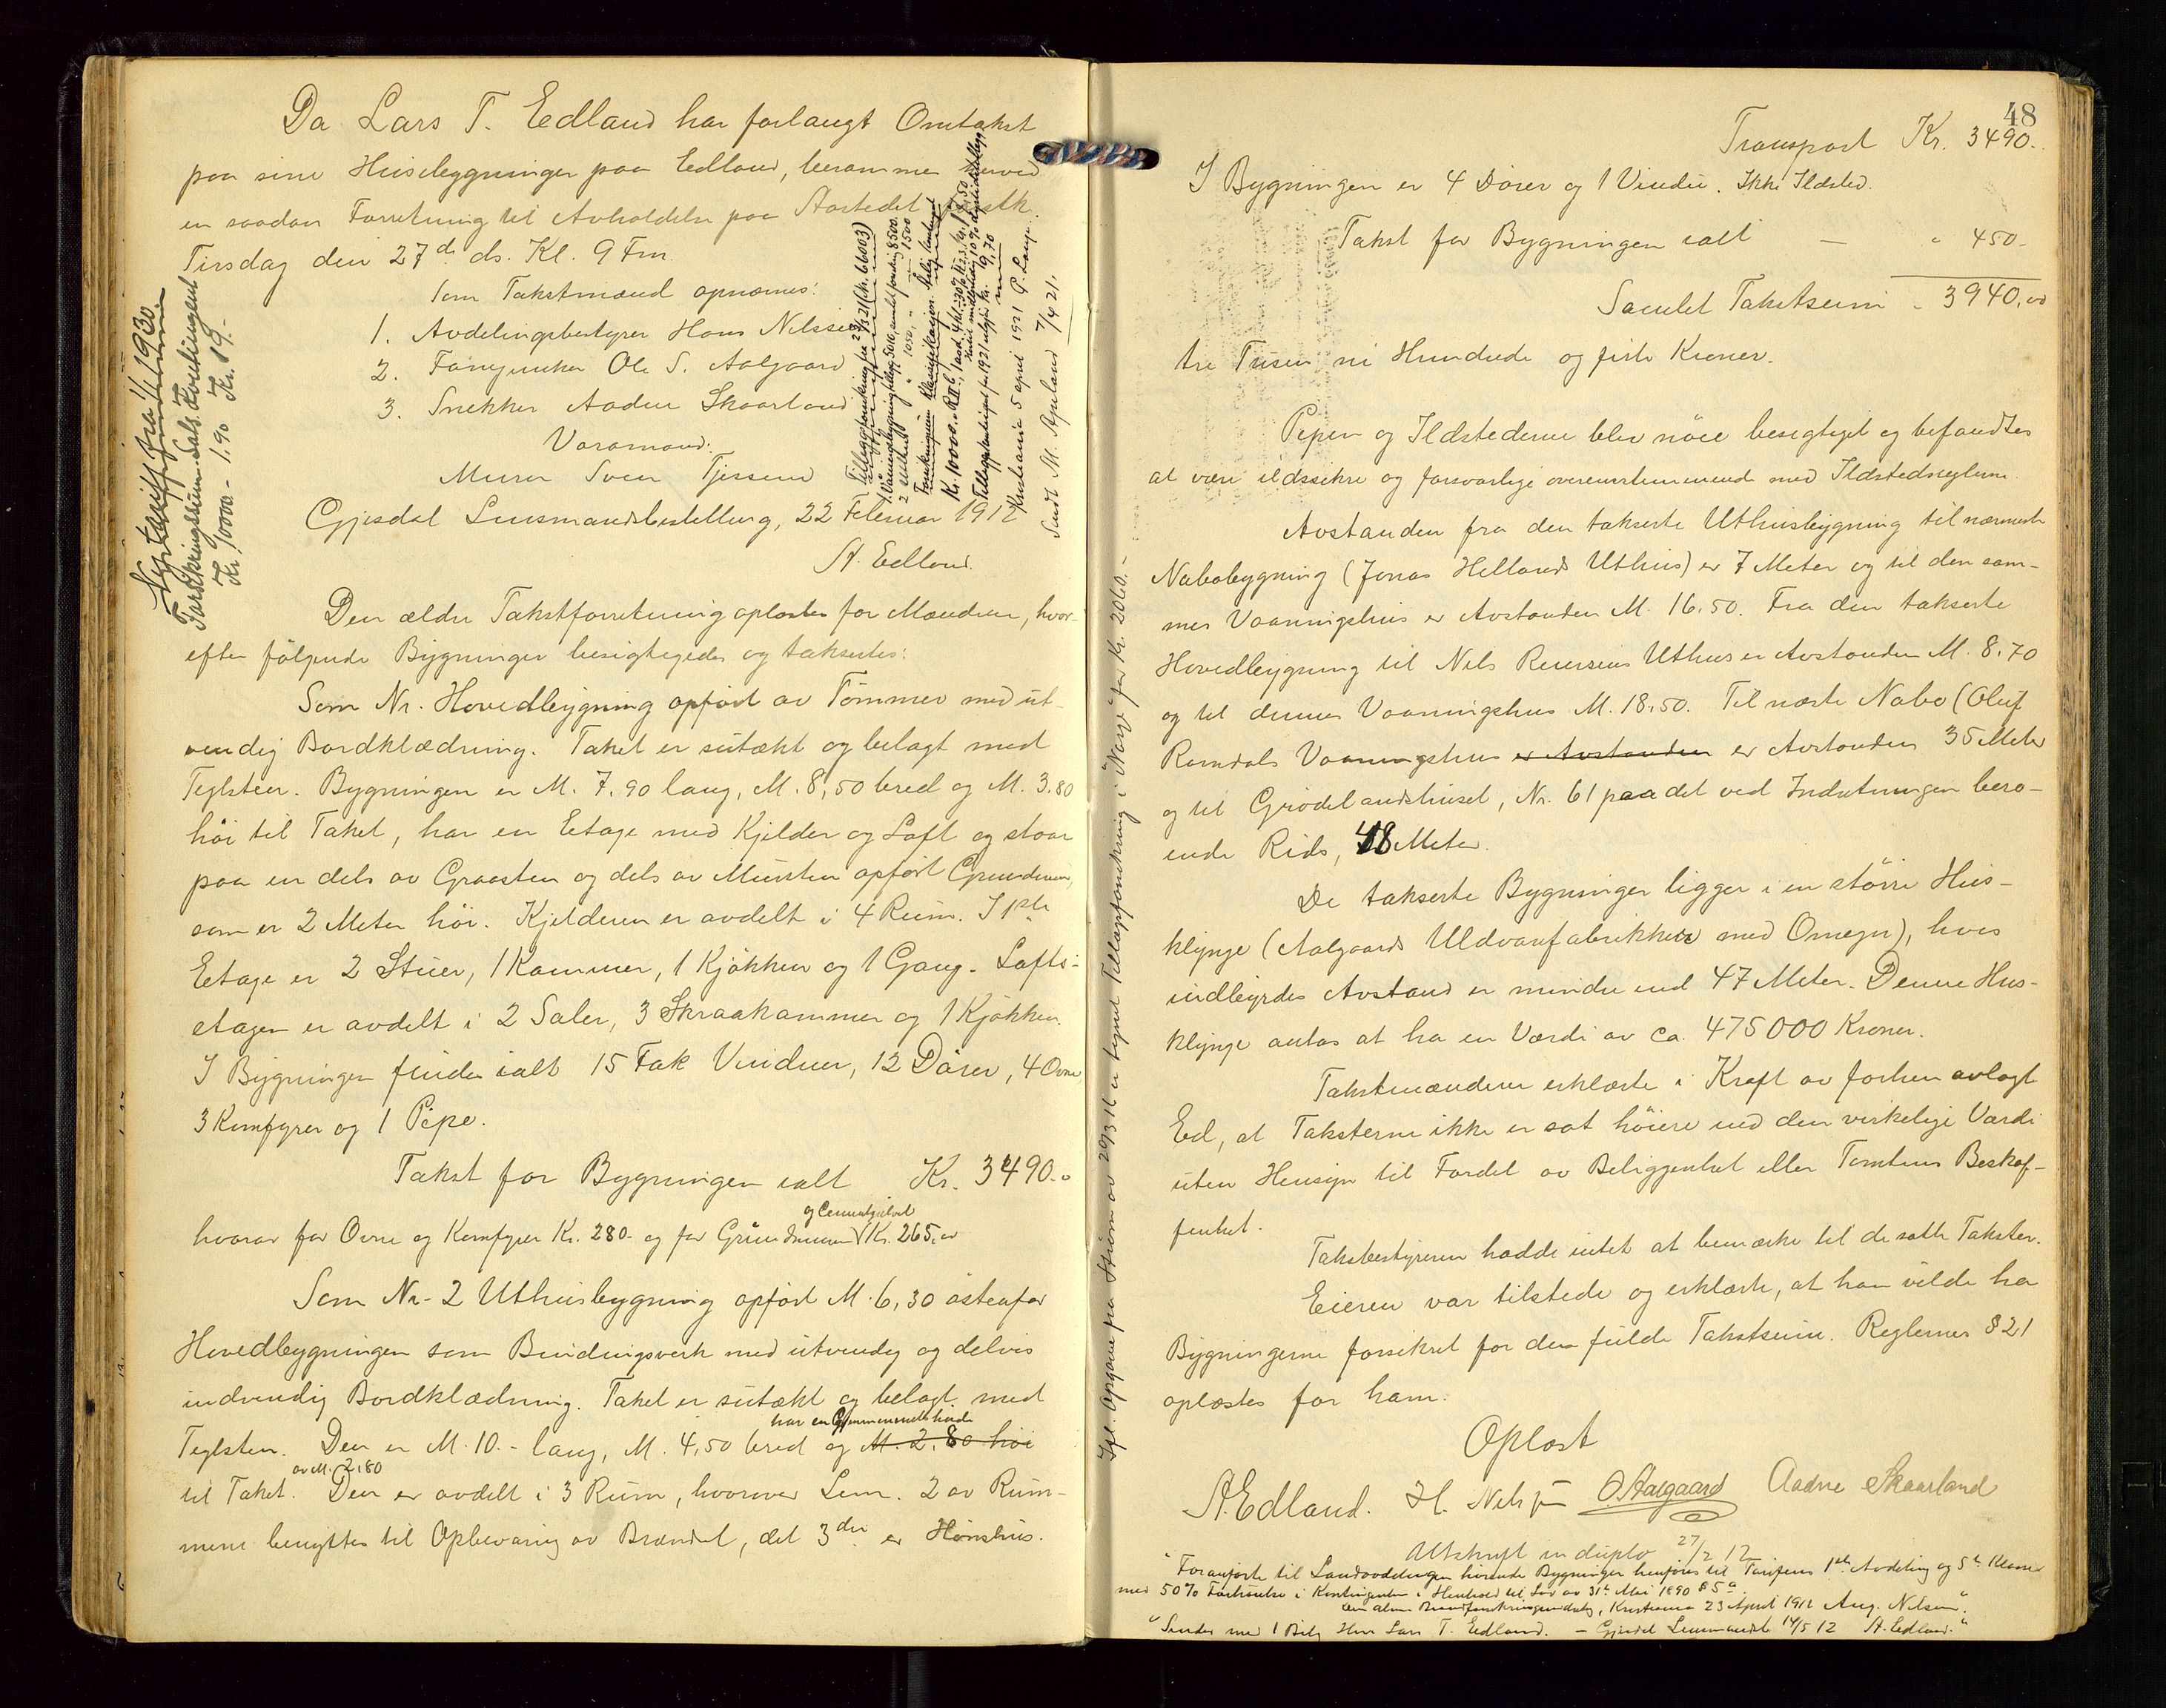 Da Lars T. Edland har forlangt Omtakst
paa sine Husebygninger paa Edland, berammes herved
en saadan Forretning til Avholdelse paa Aastedet førstk.
Tirsdag den 27de ds. Kl. 9 Fm.
Som Takstmænd opnævnes:
1. Avdelingsbestyrer Hans Nilssen
2. Farvemester Ole S. Aalgaard
3. Snekker Aadne Skaarland
Varamand:
Murer Sven Tjessem
Gjesdal Lensmandsbestilling, 22 Februar 1912
A. Edland.
Nytariff fra 1/1 1930.
Forsikringssum Sals. Kontingent
Kr. 10000 - 1.90 Kr. 19.-
Tillægsforsikring fra 23/3 21 (Ch. 66003)
1. Vaaningsbygning tillæg 5010, samlet forsikring 8500.
2 Uthus " 1050, " " 1500
Kr. 10000.
Kristiania 5 april 1921 P. Lange
Sendt M. Apeland 7/4 21.
Den ældre Takstforretning oplæstes for Mændene, hvor-
efter følgende Bygninger besigtigedes og takseredes:
Som Nr. Hovedbygning opført av Tømmer med ut-
vendig Bordklædning. Taket er sutækt og belagt med
Teglsten. Bygningen er M. 7,90 lang, M. 8,50 bred og M. 3.80
høi til Taket, har en Etage med Kjelder og Loft og staar
paa en dels av Graasten og dels av Mursten opført Grundmur,
som er 2 Meter høi. Kjelderen er avdelt i 4 Rum. I 1ste
Etage er 2 Stuer, 1 Kammer, 1 Kjøkken og 1 Gang. Lofts-
etagen er avdelt i 2 Saler, 3 Skraakammer og 1 Kjøkken.
I Bygningen findes ialt 15 Fak Vinduer, 12 Dører, 4 Ovne,
3 Komfyrer og 1 Pipe.
Takst for Bygningen ialt Kr. 3490.-
og Cementgulvet
hvorav for Ovne og Komfyrer Kr. 280.- og for Grundmuren Kr. 265.-
Som Nr. 2 Uthusbygning opført M. 6,30 østenfor
Hovedbygningen som Bindingsverk med utvendig og delvis
indvendig Bordklædning. Taket er sutækt og belagt med
har en Gjennemsnitshøide
Teglsten. Den er M. 10.- lang, M. 4,50 bred og M. 2.80 høi
av M. 2,80
til Taket. Den er avdelt i 3 Rum, hvorover Lem. 2 av Rum-
mene benyttes til Opbevaring av Brændsel, det 3die er Hønshus.
48
Transport Kr. 3490.-
I Bygningen er 4 Dører og 1 Vindu. Ikke Ildsted.
Takst for Bygningen ialt — " 450.-
Samlet Takstsum " 3940,00
tre Tusen ni Hundrede og firti Kroner.
Pipen og Ildstederne blev nøie besigtiget og befandtes
at være ildssikre og forsvarlige overensstemmende med Ildstedsreglerne.
Avstanden fra den takserte Uthusbygning til nærmeste
Nabobygning (Jonas Hellands Uthus) er 7 Meter og til den sam-
mes Vaaningshus er Avstanden M. 16,50. Fra den takserte
Hovedbygning til Nils Reiersens Uthus er Avstanden M. 8.70
og til dennes Vaaningshus M. 18,50. Til næste Nabo (Oluf
Romdals Vaaningshus er Avstanden er Avstanden 35 Meter
og til Grødelandshuset, Nr. 61 paa det ved Indretningen bero-
ende Rids, 18 Meter.
De takserte Bygninger ligger i en større Hus-
klynge (Aalgaards Uldvarefabrikker med Omegn), hvis
indbyrdes Avstand er mindre end 47 Meter. Denne Hus-
klynge antas at ha en Værdi av ca. 475000 Kroner.
Takstmændene erklærte i Kraft av forhen avlagt
Ed, at Taksterne ikke er sat høiere end den virkelige Værdi
uten Hensyn til Fordel av Beliggenhet eller Tomtens Beskaf-
fenhet.
Takstbestyreren hadde intet at bemerke til de satte Takster.
Eieren var tilstede og erklærte, at han vilde ha
Bygningerne forsikret for den fulde Takstsum. Reglernes § 21
oplæstes for ham.
Oplæst
A. Edland. H. Nilssen O. S. Aalgaard Aadne Skaarland
Utskrift in duplo 27/2 12
"Foranførte til Landavdelingen hørende Bygninger henføres til Tarifens 1ste Avdeling og 5te Klasse
med 50% Forhøielse i Kontingenten i Henhold til Lov av 31te Mai 1890 § 5a
Den alm. Brandforsikringsindretn., Kristiania 23 April 1912 Aug. Nilsen".
"Sendes med 1 Bilg Herr Lars T. Edland. - Gjesdal Lensmandsb 14/5 12 A. Edland."
Ifl. Opgave fra Storm av 29/3 16 er tegnet Tillægsforsikring i "Norge" for Kr. 2060.-